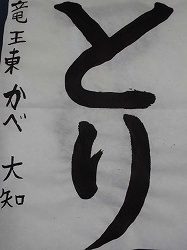 とり
竜王東 かべ 大知